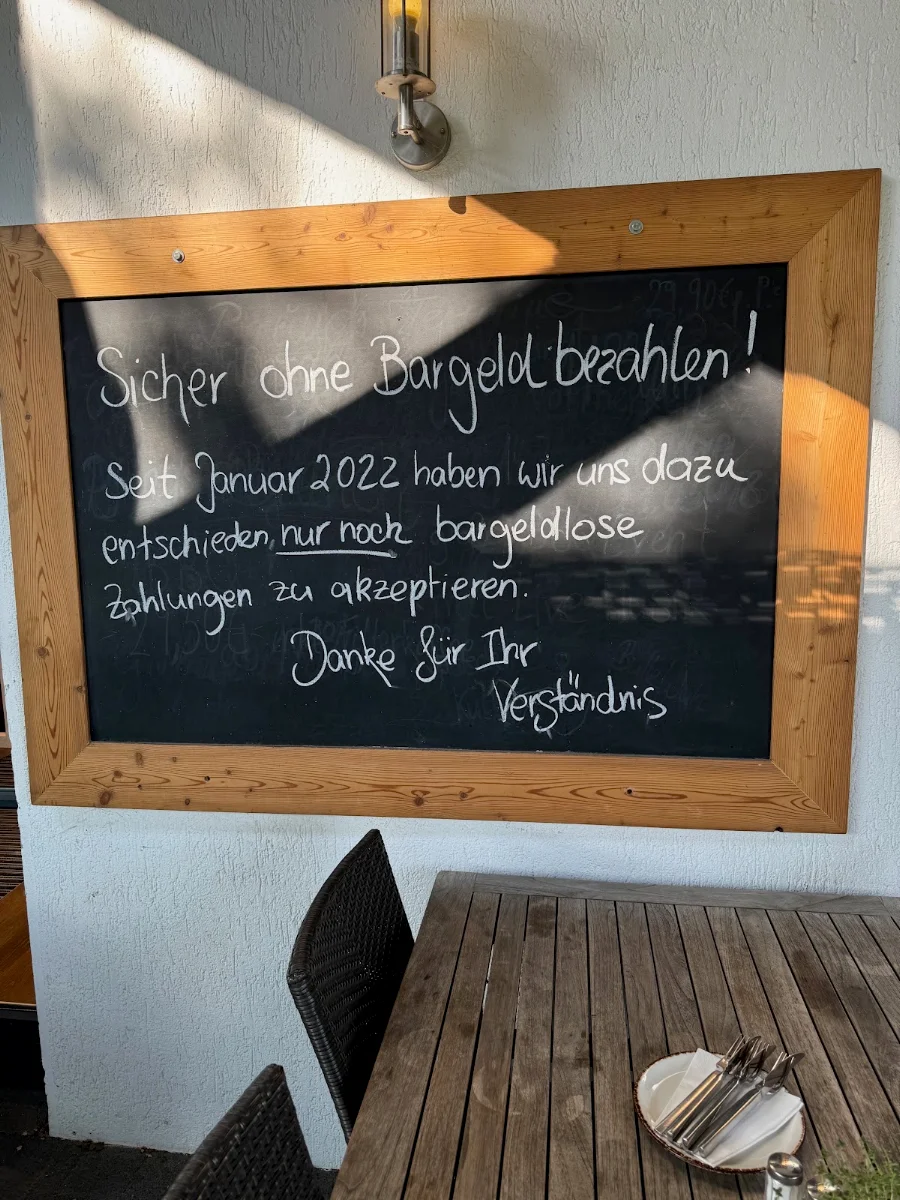 Sicher ohne Bargeld bezahlen!
Seit Januar 2022 haben wir uns dazu
entschieden, nur noch bargeldlose
Zahlungen zu akzeptieren.
Danke für Ihr
Verständnis